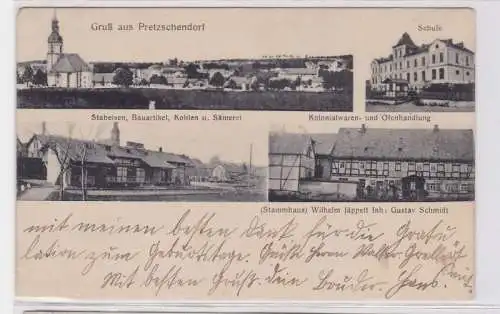 Gruß aus Pretzschendorf
Schule
Stabeisen, Bauartikel, Kohlen u. Sämerei
Kolonialwaren- und Ofenhandlung
(Stammhaus) Wilhelm Jäppelt Inh: Gustav Schmidt
mit meinen besten Dank für die Gratu
lation zum Geburtstage. Grüße Herrn Walter
Mit besten Gruß dein Bruder Hans.